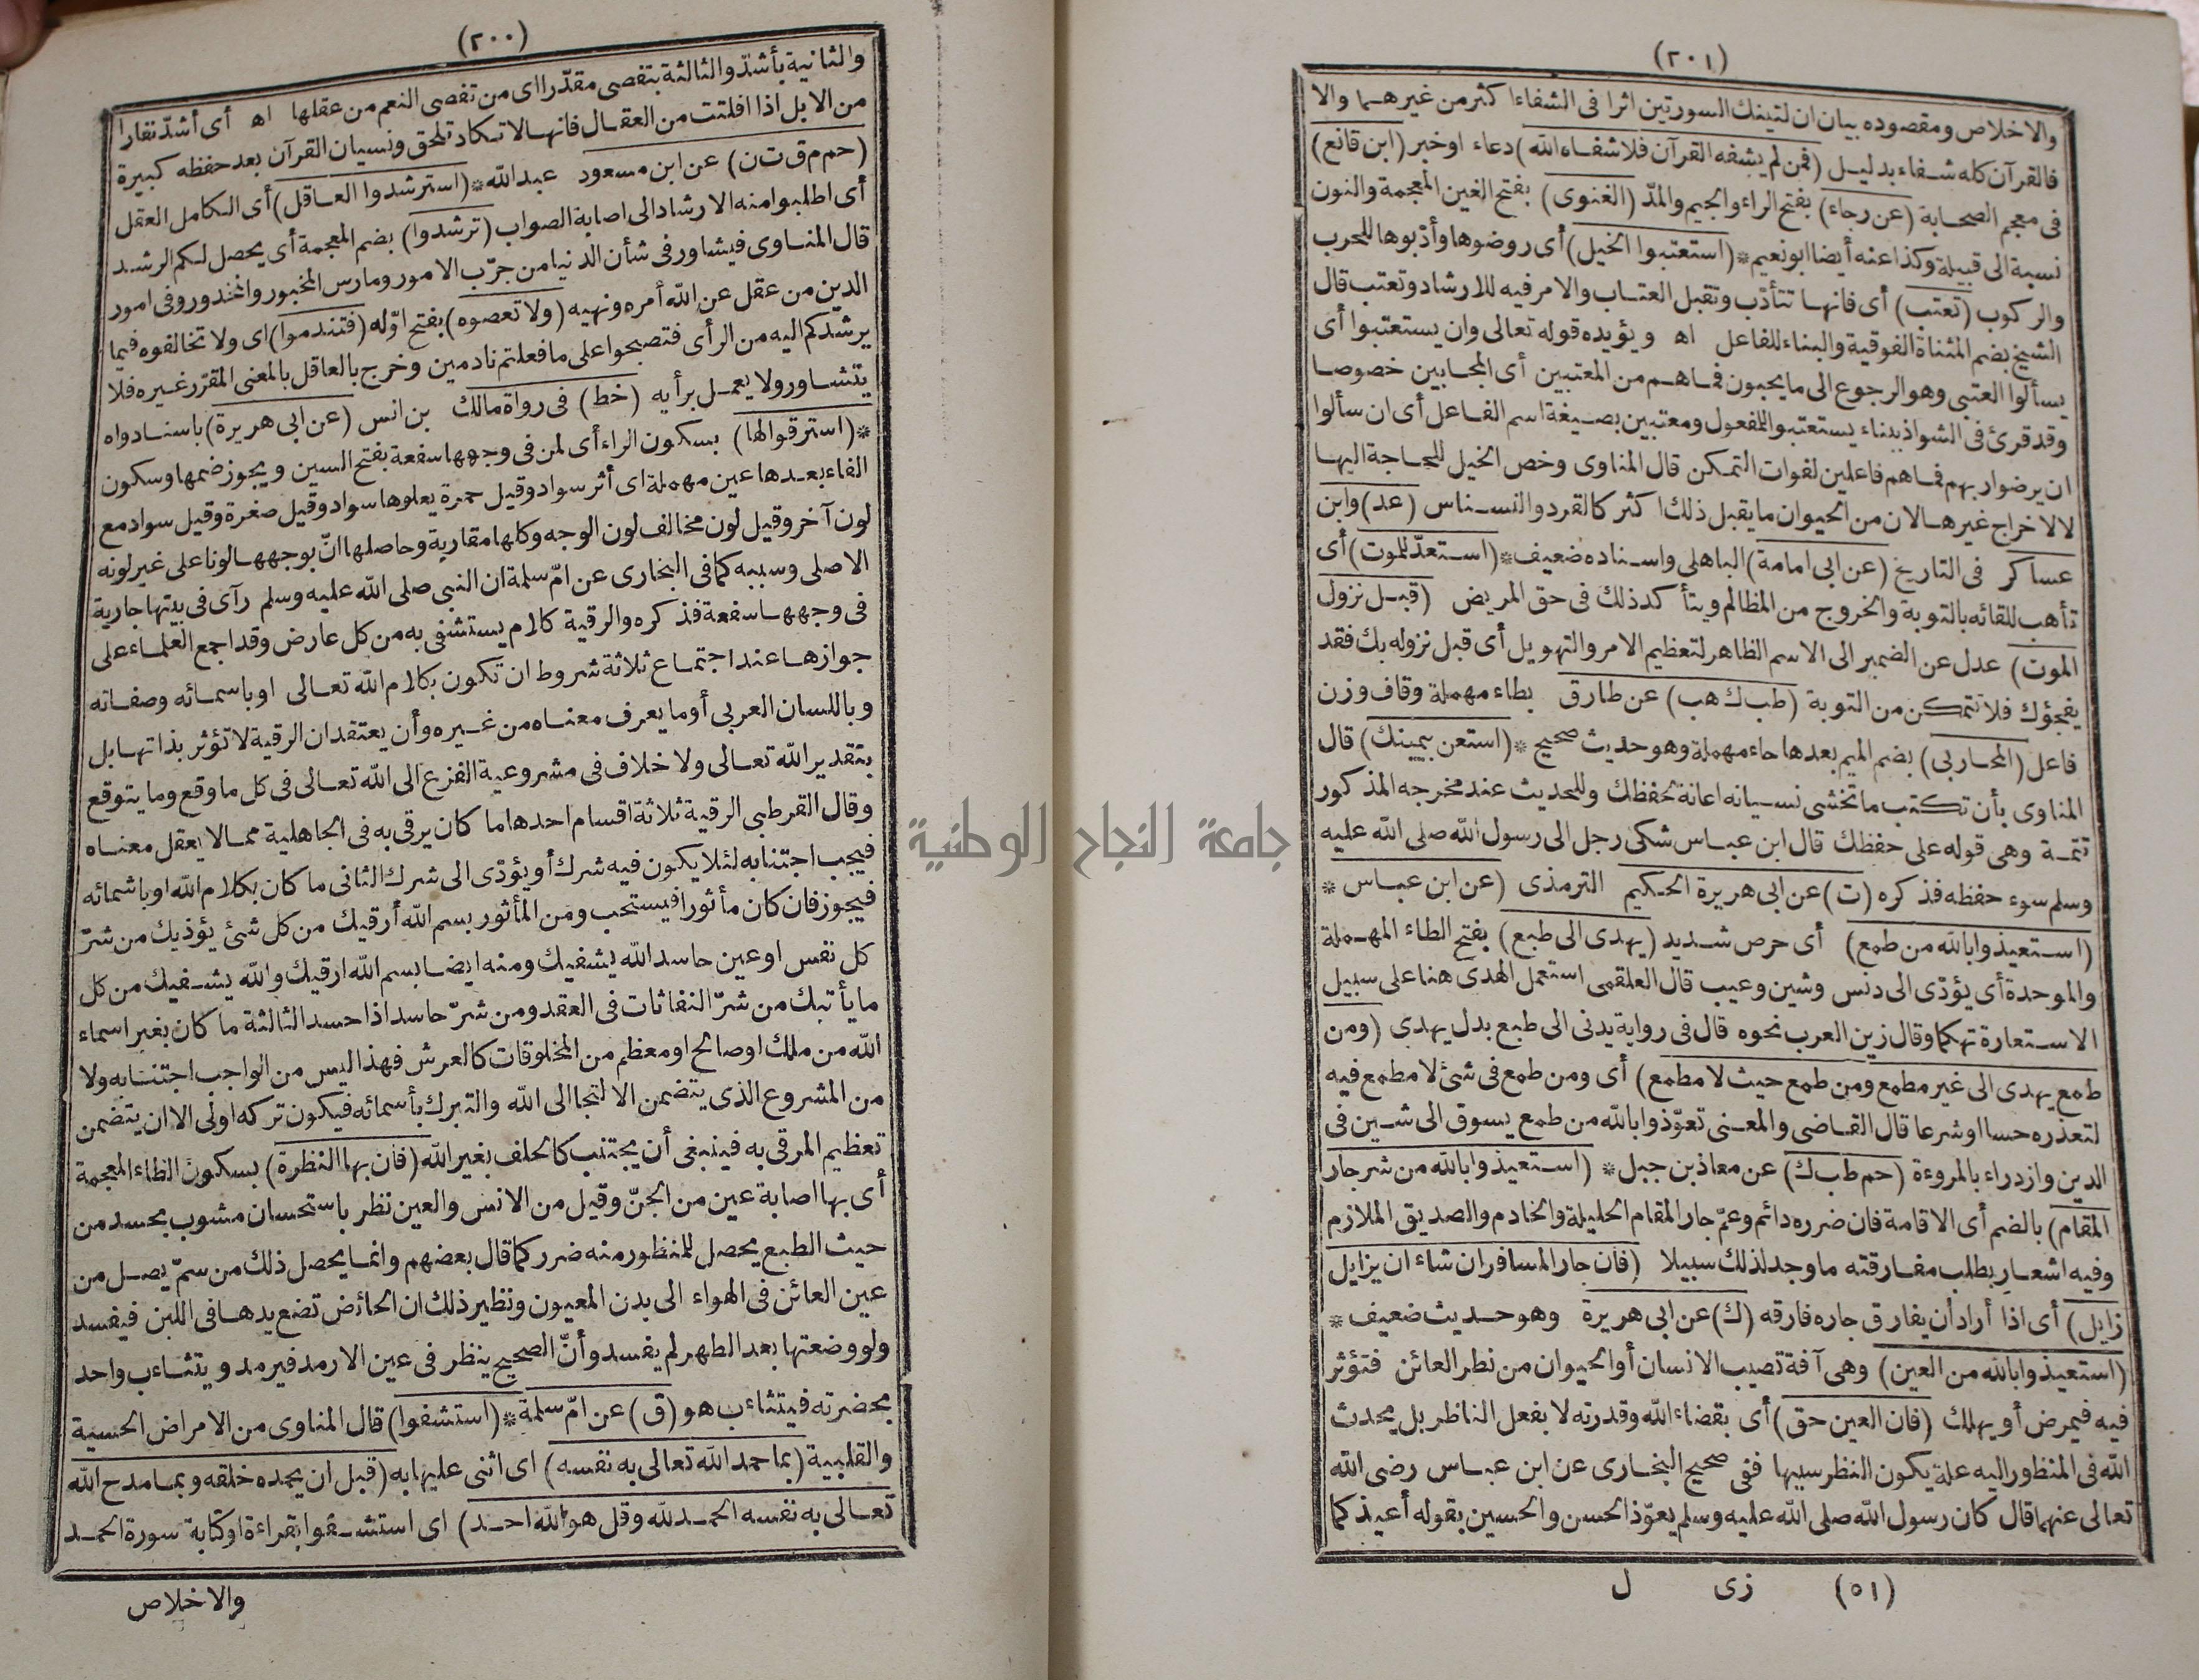 (٢٠٠)
والثانية بأشدّ والثالثة بتفصى مقدّرا اى من تفصى النعم من عقلها اه أى أشدّ نفارا
من الابل اذا افلتت من العقال فانها لا تكاد تلحق ونسيان القرآن بعد حفظه كبيرة
(حم م ق ت ن) عن ابن مسعود عبدالله * (استرشدوا العاقل) أى الكامل العقل
أى اطلبوا منه الارشاد الى اصابة الصواب (ترشدوا) بضم المعجمة أى يحصل لكم الرشد
قال المناوى فيشاور فى شأن الدنيا من جرّب الامور ومارس المخبور والمحذور وفى امور
الدين من عقل عن الله أمره ونهيه (ولا تعصوه) بفتح اوّله (فتندموا) اى ولا تخالفوه فيما
يرشدكم اليه من الرأى فتصبحوا على ما فعلتم نادمين وخرج بالعاقل بالمعنى المقرّر غيره فلا
يتشاور ولا يعمل برأيه (خط) فى رواة مالك بن انس (عن ابى هريرة) باسناد واه
* (استرقوا لها) بسكون الراء أى لمن فى وجهها سفعة بفتح السين ويجوز ضمها وسكون
الفاء بعدها عين مهملة اى أثر سواد وقيل حمرة يعلوها سواد وقيل صفرة وقيل سواد مع
لون آخر وقيل لون مخالف لون الوجه وكلها مقاربة وحاصلها انّ بوجهها لونا على غير لونه
الاصلى وسببه كما فى البخارى عن امّ سلمة ان النبى صلى الله عليه وسلم رآى فى بيتها جارية
فى وجهها سفعة فذكره والرقية كلام يستشفى به من كل عارض وقد اجمع العلماء على
جوازها عند اجتماع ثلاثة شروط ان تكون بكلام الله تعالى او باسمائه وصفاته
وباللسان العربى أو ما يعرف معناه من غيره وأن يعتقد ان الرقية لا تؤثر بذاتها بل
بتقدير الله تعالى ولا خلاف فى مشروعية الفزع الى الله تعالى فى كل ما وقع وما يتوقع
وقال القرطبى الرقية ثلاثة اقسام احدها ما كان يرقى به فى الجاهلية مما لا يعقل معناه
فيجب اجتنابه لئلا يكون فيه شرك أو يؤدّى الى شرك الثانى ما كان بكلام الله او باسمائه
فيجوز فان كان مأثورا فيستحب ومن المأثور بسم الله أرقيك من كل شئ يؤذيك من شرّ
كل نفس او عين حاسد الله يشفيك ومنه ايضا بسم الله ارقيك والله يشفيك من كل
ما يأتيك من شرّ النفاثات فى العقد ومن شرّ حاسد اذا حسد الثالثة ما كان بغير اسماء
الله من ملك او صالح او معظم من المخلوقات كالعرش فهذا ليس من الواجب اجتنابه ولا
من المشروع الذى يتضمن الالتجا الى الله والتبرك بأسمائه فيكون تركه اولى الا ان يتضمن
تعظيم المرقى به فينبغى أن يجتنب كالحلف بغير الله (فان بها النظرة) بسكون الظاء المعجمة
أى بها اصابة عين من الجنّ وقيل من الانس والعين نظر باستحسان مشوب بحسد من
حيث الطبع يحصل للمنظور منه ضرر كما قال بعضهم وانما يحصل ذلك من سمّ يصل من
عين العائن فى الهواء الى بدن المعيون ونظير ذلك ان الحائض تضع يدها فى اللبن فيفسد
ولو وضعتها بعد الطهر لم يفسد وأنّ الصحيح ينظر فى عين الارمد فيرمد ويتثاءب واحد
بحضرته فيتثاءب هو (ق) عن امّ سلمة * (استشفوا) قال المناوى من الامراض الحسية
والقلبية (بما حمد الله تعالى به نفسه) اى اثنى عليها به (قبل ان يحمده خلقه وبما مدح الله
تعالى به نفسه الحمد لله وقل هو الله احد) اى استشفوا بقراءة او كتابة سورة الحمد
والاخلاص
(٢٠١)
والاخلاص ومقصوده بيان ان لتينك السورتين اثرا فى الشفاء اكثر من غيرهما والا
فالقرآن كله شفاء بدليل (فمن لم يشفه القرآن فلا شفاه الله) دعاء او خبر (ابن قانع)
فى معجم الصحابة (عن رجاء) بفتح الراء والجيم والمدّ (الغنوى) بفتح الغين المعجمة والنون
نسبة الى قبيلة وكذا عنه أيضا ابو نعيم * (استعتبوا الخيل) أى روضوها وأدّبوها للحرب
والركوب (تعتب) أى فانها تتأدّب وتقبل العتاب والامر فيه للارشاد وتعتب قال
الشيخ بضم المثناة الفوقية والبناء للفاعل اه ويؤيده قوله تعالى وان يستعتبوا أى
يسألوا العتبى وهو الرجوع الى ما يحبون فما هم من المعتبين أى المجابين خصوصا
وقد قرئ فى الشواذ ببناء يستعتبوا للمفعول ومعتبين بصيغة اسم الفاعل أى ان سألوا
ان يرضوا ربهم فما هم فاعلين لفوات التمكن قال المناوى وخص الخيل للحاجة اليها
لا لاخراج غيرها لان من الحيوان ما يقبل ذلك اكثر كالقرد والنسناس (عد) وابن
عساكر فى التاريخ (عن ابى امامة) الباهلى واسناده ضعيف * (استعدّ للموت) أى
تأهب للقائه بالتوبة والخروج من المظالم ويتأكد ذلك فى حق المريض (قبل نزول
الموت) عدل عن الضمير الى الاسم الظاهر لتعظيم الامر والتهويل أى قبل نزوله بك فقد
يفجؤك فلا تتمكن من التوبة (طب ك هب) عن طارق بطاء مهملة وقاف وزن
فاعل (المحاربى) بضم الميم بعدها حاء مهملة وهو حديث صحيح * (استعن بيمينك) قال
المناوى بأن تكتب ما تخشى نسيانه اعانة لحفظك وللحديث عند مخرجه المذكور
تتمة وهى قوله على حفظك قال ابن عباس شكى رجل الى رسول الله صلى الله عليه
وسلم سوء حفظه فذكره (ت) عن ابى هريرة الحكيم الترمذى (عن ابن عباس *
(استعيذوا بالله من طمع) أى حرص شديد (يهدى الى طبع) بفتح الطاء المهملة
والموحدة أى يؤدّى الى دنس وشين وعيب قال العلقمى استعمل الهدى هنا على سبيل
الاستعارة تهكما وقال زين العرب نحوه قال فى رواية يدنى الى طبع بدل يهدى (ومن
طمع يهدى الى غير مطمع ومن طمع حيث لا مطمع) أى ومن طمع فى شئ لا مطمع فيه
لتعذره حسا او شرعا قال القاضى والمعنى تعوّذوا بالله من طمع يسوق الى شين فى
الدين وازدراء بالمروءة (حم طب ك) عن معاذ بن جبل * (استعيذوا بالله من شر جار
المقام) بالضم أى الاقامة فان ضرره دائم وعمّ جار المقام الحليلة والخادم والصديق الملازم
وفيه اشعار بطلب مفارقته ما وجد لذلك سبيلا (فان جار المسافر ان شاء ان يزايل
زايل) أى اذا أراد أن يفارق جاره فارقه (ك) عن ابى هريرة وهو حديث ضعيف *
(استعيذوا بالله من العين) وهى آفة تصيب الانسان أو الحيوان من نظر العائن فتؤثر
فيه فيمرض أو يهلك (فان العين حق) أى بقضاء الله وقدرته لا بفعل الناظر بل يحدث
الله فى المنظور اليه علة يكون النظر سببها ففى صحيح البخارى عن ابن عباس رضى الله
تعالى عنهما قال كان رسول الله صلى الله عليه وسلم يعوّذ الحسن والحسين بقوله أعيذكما
(٥١) زى ل
جامعة النجاح الوطنية